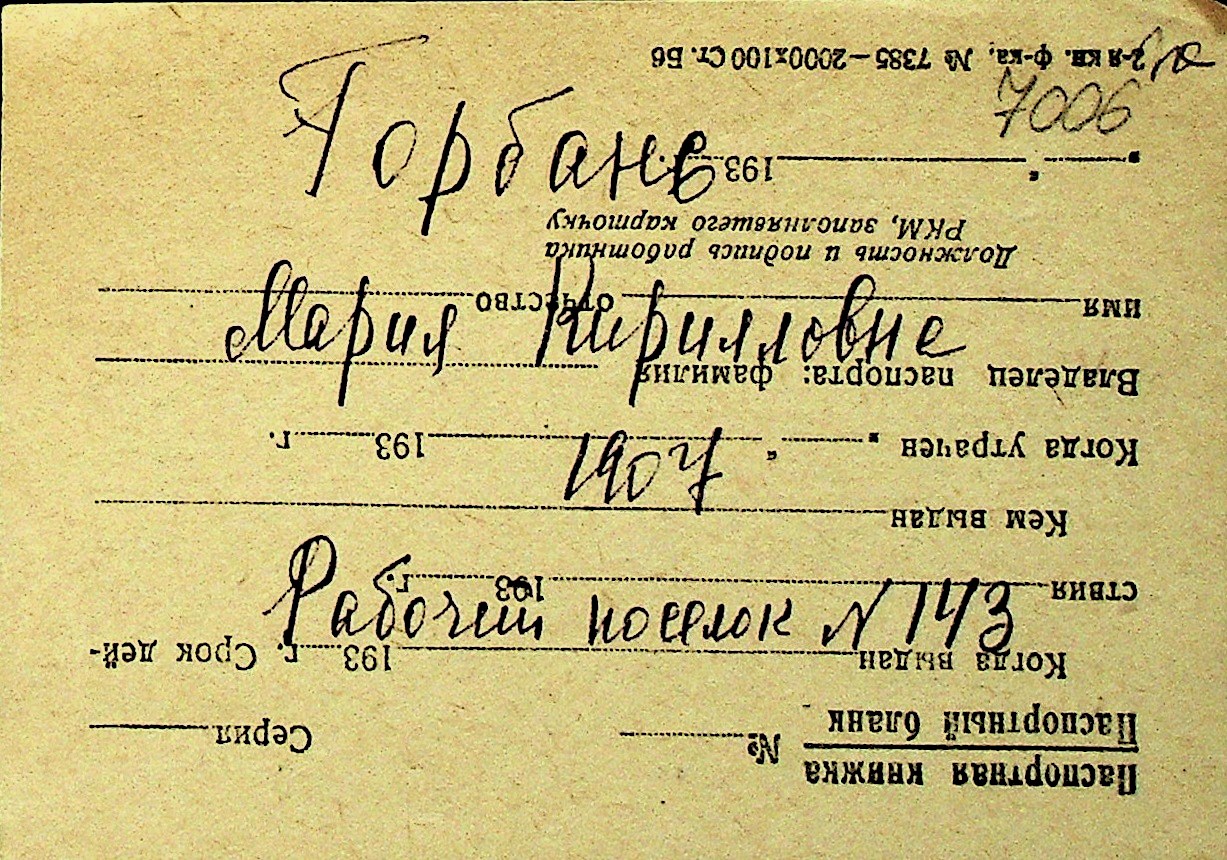 7006
Горбань
Мария Кирилловне
1907
Рабочий поселок N 143
Паспортная книжка
Паспортный бланк № Серия
Когда выдан 193 г. Срок дей-
ствия 193 г.
Кем выдан
Когда утрачен " " 193 г.
Владелец паспорта: фамилия
имя отчество
Должность и подпись работника
РКМ, заполнявшего карточку
" " 193 г.
2-я кн. ф-ка. № 7385—2000х100 Ст. Б6